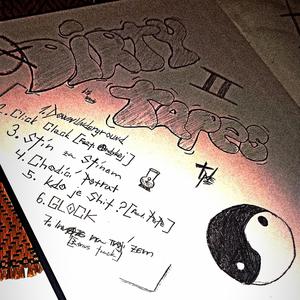 DIRTY
II
TAPES
1. Down Underground
2. Click Clack [feat.
3. Stín za Stínem
4. Chodící Portrét
5. Kdo je Shit? [
6. GLOCK
7. na Tvoj zem
[Bonus track]